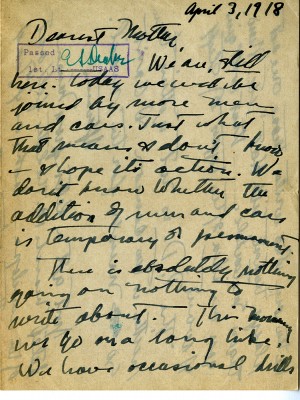 April 3, 1918
Dearest Mother
Passed
1st. Lt. USAAS
We are still
here. Today we will be
joined by more men
and cars. Just what
that means I don't know
- I hope its action. We
don't know whether the
addition of men and cars
is temporary or permanent.
There is absolutely nothing
going on nothing to
write about. This morning
we go on a long hike.
We have occasional drills